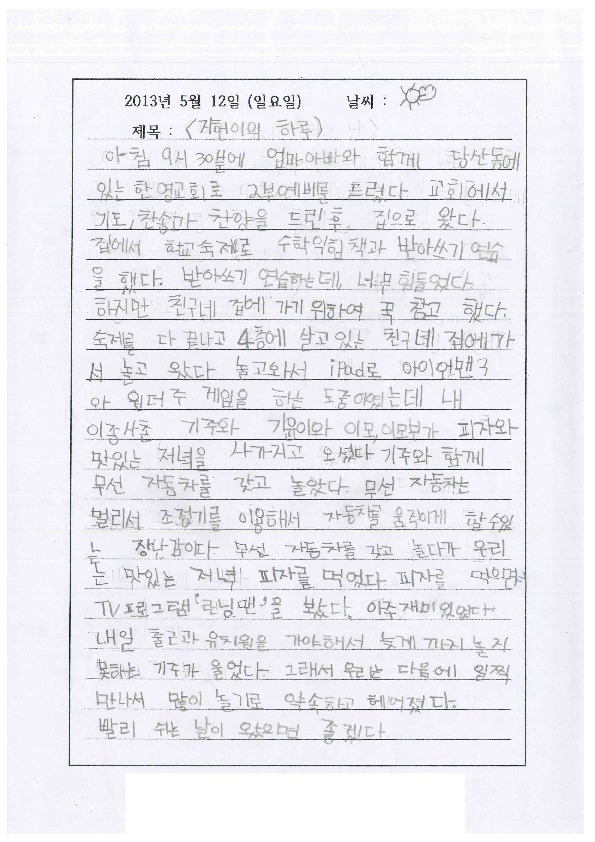 2013년 5월 12일 (일요일) 날씨 :
제목 : <지현이의 하루>
아침 9시 30분에 엄마아빠와 함께 당산동에
있는 한영교회로 2부예배를 드렸다 교회에서
기도, 찬송가 찬양을 드린 후, 집으로 왔다.
집에서 학교숙제로 수학익힘책과 받아쓰기 연습
을 했다. 받아쓰기 연습하는데, 너무 힘들었다
하지만 친구네 집에 가기 위하여 꾹 참고 했다.
숙제를 다 끝나고 4층에 살고 있는 친구네 집에가
서 놀고 왔다 놀고와서 iPad로 아이언맨3
와 게임을 하는 도중이였는데 내
이종사촌 기주와 기유이와 이모, 이모부가 피자와
맛있는 저녁을 사가지고 오셨다 기주와 함께
무선 자동차를 갖고 놀았다. 무선 자동차는
멀리서 조정기를 이용해서 자동차를 움직이게 할수있
는 장난감이다 무선 자동차를 갖고 놀다가 우리
는 맛있는 저녁 피자를 먹었다 피자를 먹으면서
TV프로그램 '런닝맨'을 봤다. 아주 재미있었다
내일 출근과 유치원을 가야해서 늦게 까지 놀지
못하는 기주가 울었다. 그래서 우리는 다음에 일찍
만나서 많이 놀기로 약속하고 헤어졌다.
빨리 쉬는 날이 왔으면 좋겠다